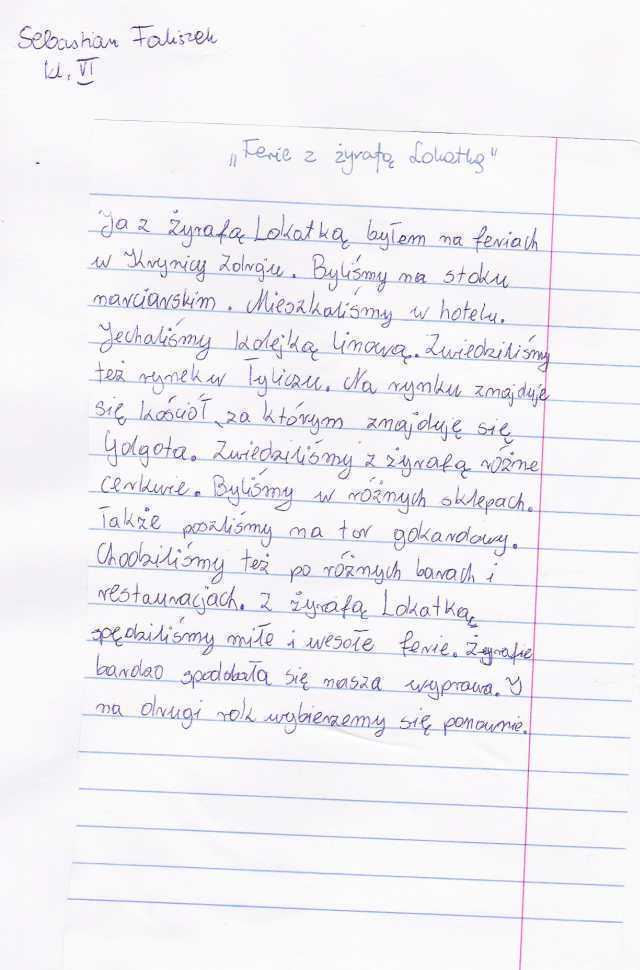 Sebastian Faliszek
kl. VI
"Ferie z żyrafą Lokatką"
Ja z żyrafą Lokatką byłem na feriach
w Krynicy Zdroju. Byliśmy na stoku
narciarskim. Mieszkaliśmy w hotelu.
Jechaliśmy kolejką linową. Zwiedziliśmy
też rynek w Tyliczu. Na rynku znajduje
się kościół, za którym znajduję się
Golgota. Zwiedziliśmy z żyrafą różne
cerkwie. Byliśmy w różnych sklepach.
Także poszliśmy na tor gokardowy.
Chodziliśmy też po różnych barach i
restauracjach. Z żyrafą Lokatką
spędziliśmy miłe i wesołe ferie. Żyrafie
bardzo spodobała się nasza wyprawa. I
na drugi rok wybierzemy się ponownie.